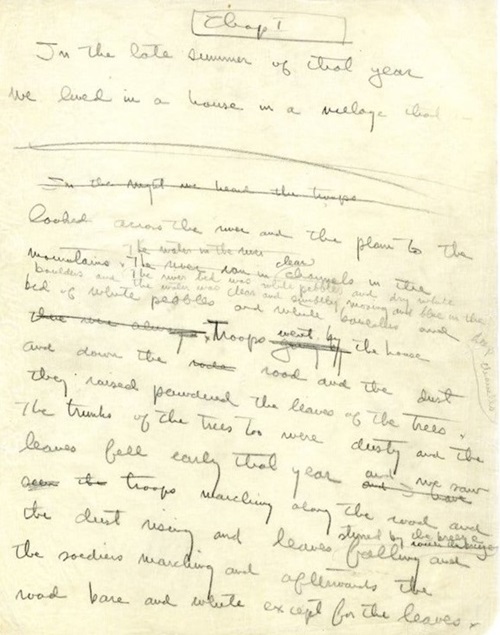 Chap I
In the late summer of that year
we lived in a house in a village that
In the night we heard the troops
looked across the river and the plain to the
The water in the river clear
mountains. The river ran in channels in the
boulders and The river bed was white pebbles and dry white
the water was clear and swiftly moving and blue in the
bed of white pebbles and white boulders and
channels
Troops went by the house
and down the road and the dust
they raised powdered the leaves of the trees.
The trunks of the trees too were dusty and the
leaves fell early that year and we saw
troops marching along the road and
stirred by the breeze
the dust rising and leaves falling and
the soldiers marching and afterwards the
road bare and white except for the leaves.